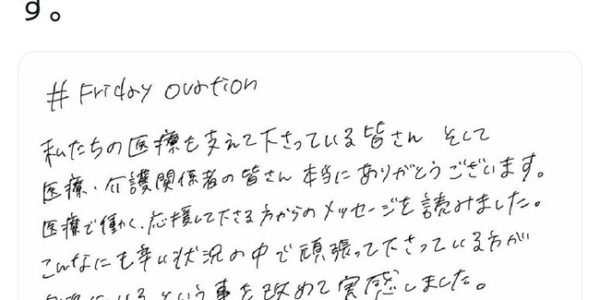 す。
# Friday ovation
私たちの医療を支えて下さっている皆さん そして
医療・介護関係者の皆さん 本当にありがとうございます。
医療で働く、応援して下さる方からのメッセージを読みました。
こんなにも辛い状況の中で頑張って下さっている方が
いるという事を改めて実感しました。